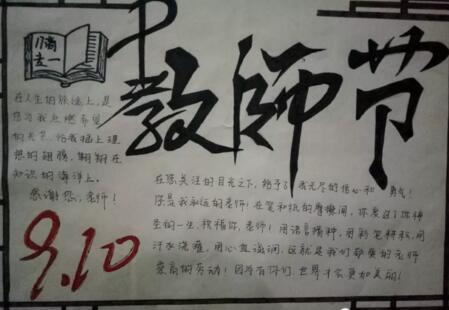 教师节
在人生的旅途上,是
您为我点燃希望
的光芒,给我插上理
想的翅膀,翱翔在
知识的海洋上。
感谢您,老师!
9.10
在您关注的目光之下,给予了我无尽的信心和勇气!
您是我永远的老师!在笔和纸的摩擦间,你度过了你
的一生,祝福你,老师!用语言播种,用彩笔耕耘,用
汗水浇灌,用心血滋润,这就是我们敬爱的老师
崇高的劳动!因为有你们,世界才会更加美丽!